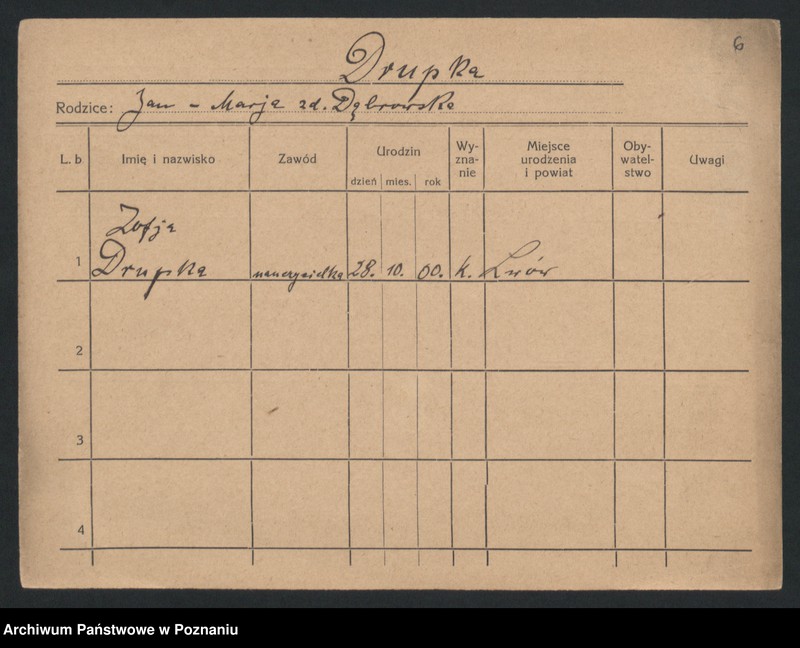 6
Drupka
Rodzice: Jan - Marja zd. Dąbrowska
L. b. Imię i nazwisko Zawód Urodzin dzień mies. rok Wy-zna-nie Miejsce urodzenia i powiat Oby-watel-stwo Uwagi
Zofja
1 Drupka nauczycielka 28. 10. 00. k. Lwów
2
3
4
Archiwum Państwowe w Poznaniu